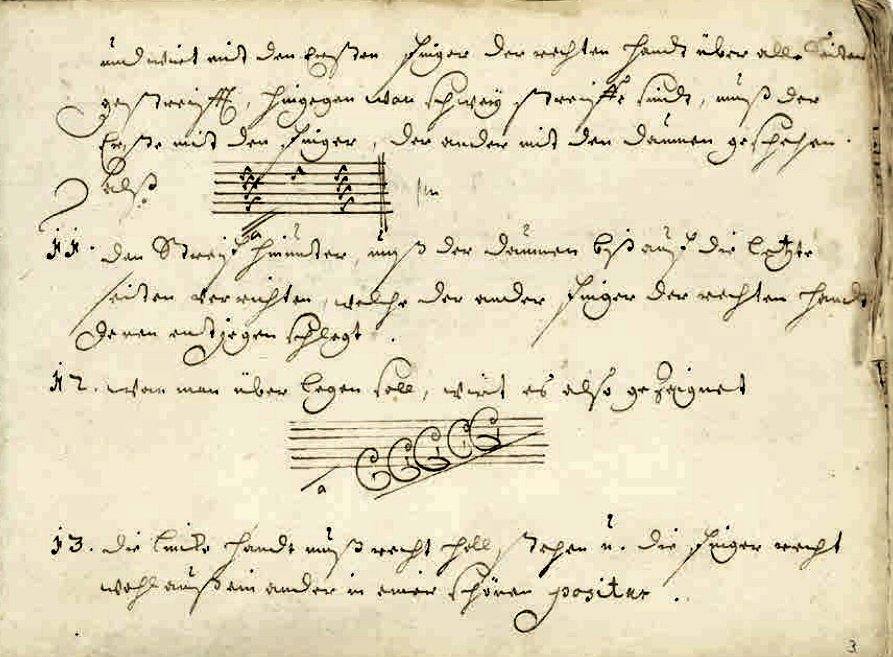 und wirt mit den Ersten finger der rechten handt über alle Seiten
gestreifft, hingegen wan schon streiffe sindt, muß der
Erste mit den finger, der ander mit den daumen geschehen.
alß
a
11. den Streiff hinunter, muß der daumen biß auf die letzte
seiten verrichten, welche der ander finger der rechten handt
denen entgegen schlegt.
12. wan man über legen soll, wirt es also gezeignet
a
13. die lincke handt muß recht holl stehen u. die finger recht
wohl auß ein ander in einer schönen positur.
3